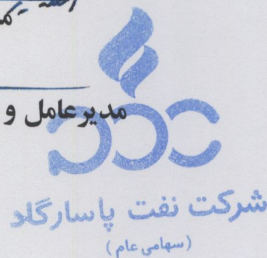 مدیر عامل و
شرکت نفت پاسارگاد
(سهامی عام)